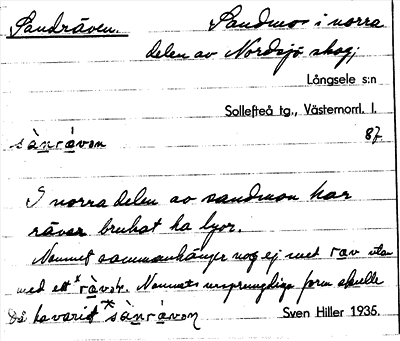 Sandråven. Sandmo i norra
delen av Nordsjö skog.
Långsele s:n
Sollefteå tg., Västernorrl. l.
87.
sàn råvon
I norra delen av sandmon har
rävar brukat ha lyor.
Namnet sammanhänger nog ej med räv utan
med ett *råvon. Namnets ursprungliga form skulle
då ha varit *sànråvon
Sven Hiller 1935.